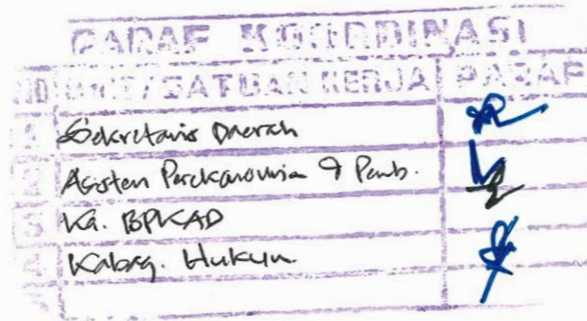 PARAF KOORDINASI
NO UNIT/SATUAN KERJA PARAF
1 Sekretaris Daerah
2 Asisten Perekonomian & Pemb.
3 Ka. BPKAD
4 Kabag. Hukum